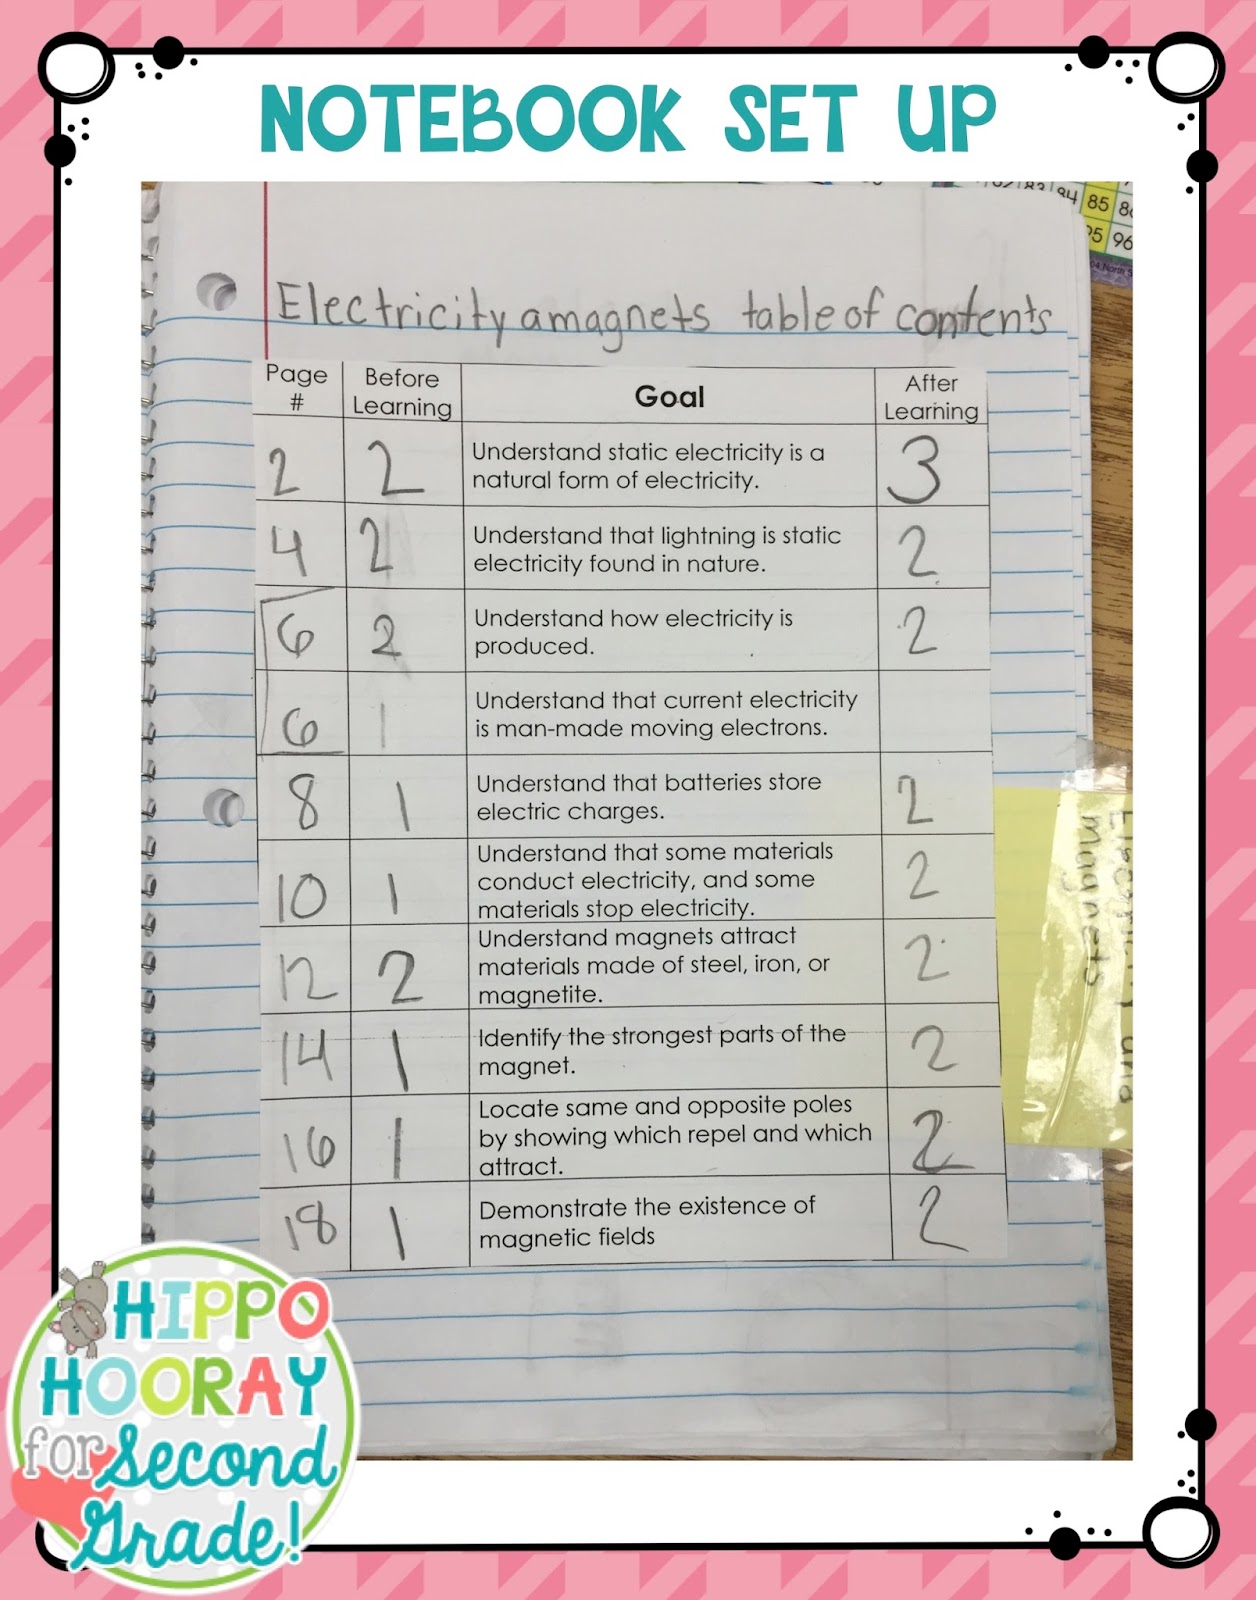 NOTEBOOK SET UP
84 85
95 96
Electricity amagnets table of contents
Page # Before Learning Goal After Learning
2 2 Understand static electricity is a 3
natural form of electricity.
4 2 Understand that lightning is static 2
electricity found in nature.
6 2 Understand how electricity is 2
produced.
6 1 Understand that current electricity
is man-made moving electrons.
8 1 Understand that batteries store 2
electric charges.
10 1 Understand that some materials 2
conduct electricity, and some
materials stop electricity.
12 2 Understand magnets attract 2
materials made of steel, iron, or
magnetite.
14 1 Identify the strongest parts of the 2
magnet.
16 1 Locate same and opposite poles 2
by showing which repel and which
attract.
18 1 Demonstrate the existence of 2
magnetic fields
Electricity and
magnets
HIPPO
HOORAY
for Second
Grade!